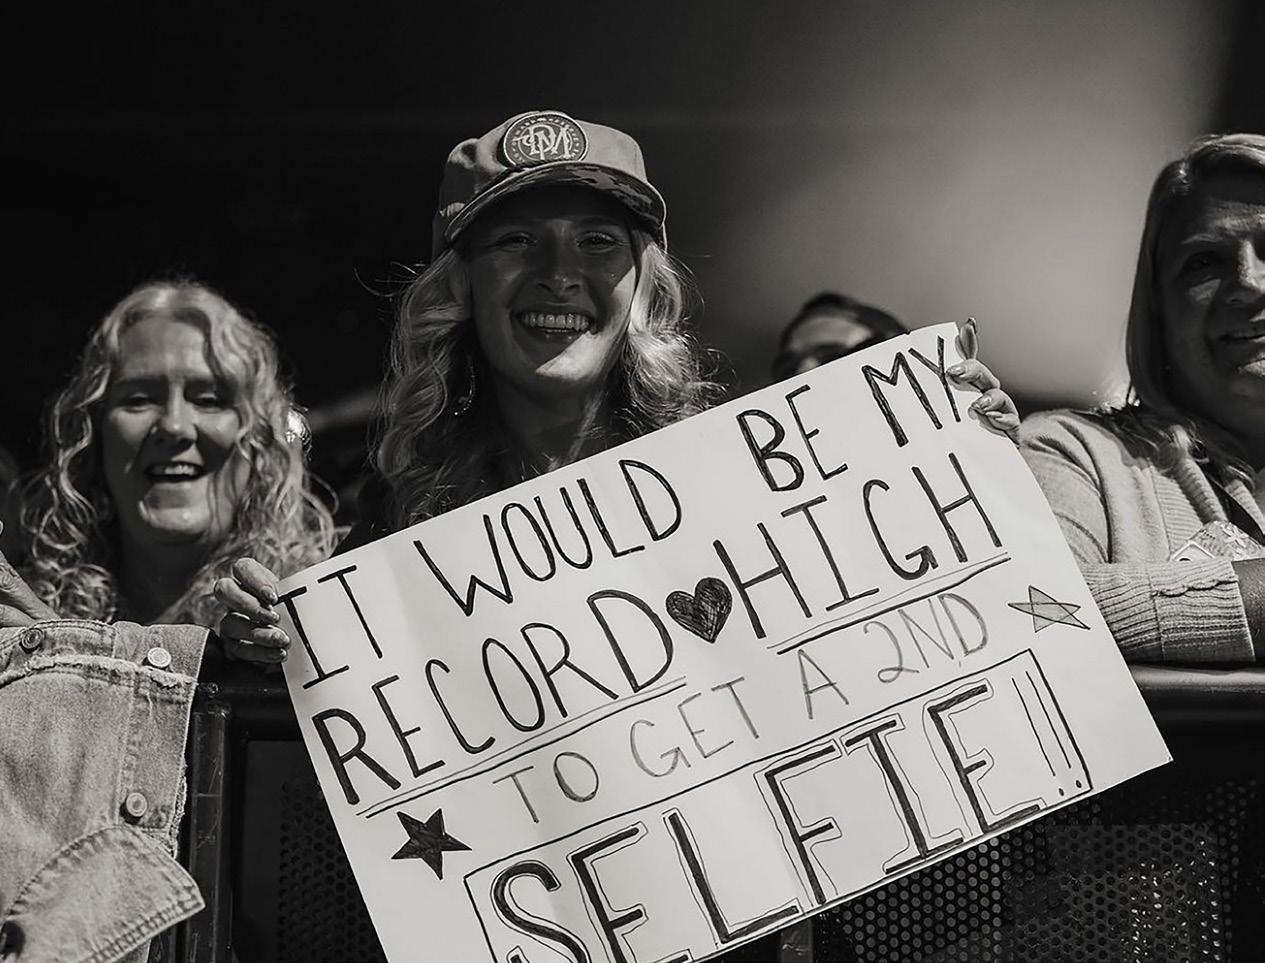 IT WOULD BE MY
RECORD♥HIGH
TO GET A 2ND
SELFIE!!